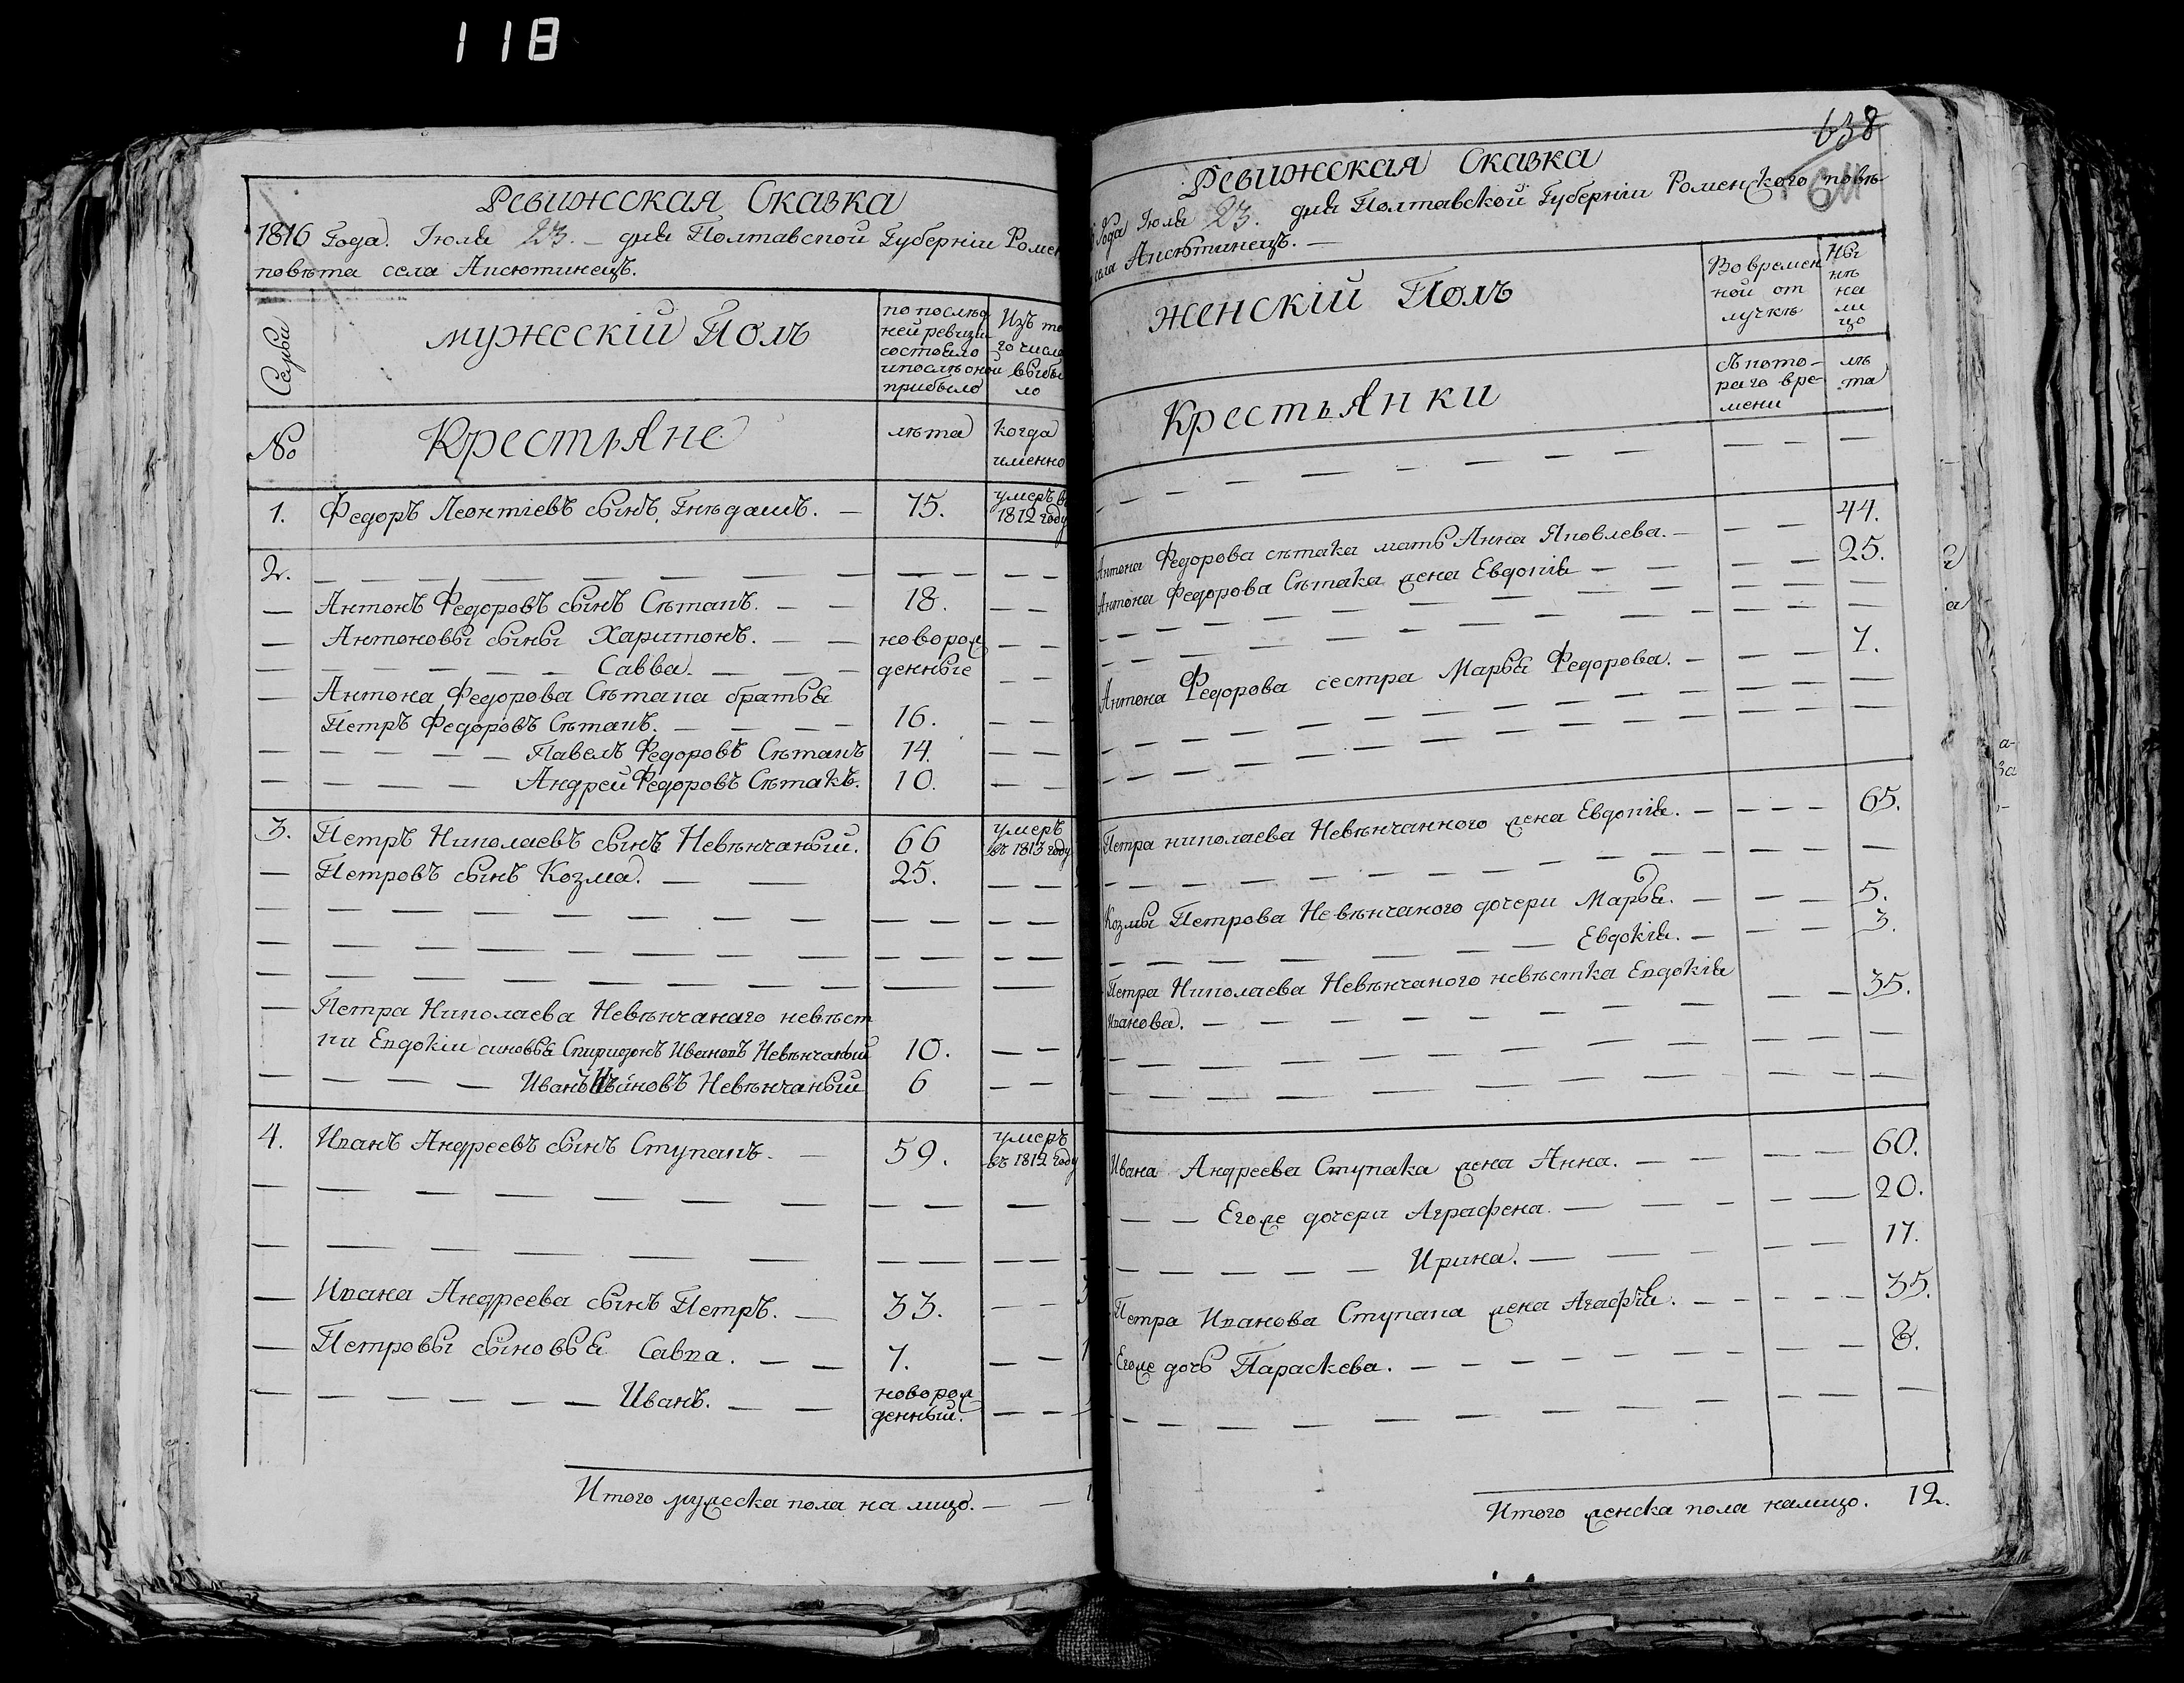 118
Ревижская Сказка
1816 Года. Июля 23. — дня Полтавской Губерніи Ромен
повѣта села Аксютинецъ.
Серьи
мужескій Полъ
по послѣд
ней ревизіи
состояло
и послѣ оной
прибыло
Изъ то
го числа
выбы
ло
№
Крестьяне
лѣта
когда
именно
1. Федоръ Леонтіевъ сынъ Гнѣдашъ. — 75. умеръ в
1812 году
2.
— Антонъ Федоровъ сынъ Сѣтакъ. — — 18. — —
— Антоновы сыны Харитонъ. — — новорож
— — — — Савва. — — — денные — —
— Антона Федорова Сѣтака братья
Петръ Федоровъ Сѣтакъ. — — — 16. — —
— — — — Павелъ Федоровъ Сѣтакъ 14. — —
— — — — Андрей Федоровъ Сѣтакъ. 10. — —
3. Петръ Николаевъ сынъ Невѣнчаный. 66 умеръ
въ 1813 году
— Петровъ сынъ Козма. — — 25. — —
— Петра Николаева Невѣнчанаго невѣст
ки Евдокіи синовья Спиридонъ Ивановъ Невѣнчаный 10. — —
— — — — Иванъ Ивановъ Невѣнчаный 6 — —
4. Иванъ Андреевъ сынъ Ступакъ. — 59. умеръ
въ 1812 году
— Ивана Андреева сынъ Петръ. — 33. — —
— Петровы сыновья Савва. — — 7. — —
— — — — — Иванъ. — — новорож
денный. — —
Итого мужеска пола на лицо. — —
638
611
Ревижская Сказка
Года Июля 23. дня Полтавской Губерніи Роменского повѣ
села Аксютинецъ. —
женскій Полъ
Во времен
ной от
лучкѣ
Ны
нѣ
на
ли
цо
Крестьянки
Съ кото-
раго вре-
мени
лѣ
та
Антона Федорова сѣтака мать Анна Яковлева. — — — 44.
Антона Федорова Сѣтака жена Евдокія — — — — 25.
Антона Федорова сестра Марья Федорова. — — — 7.
Петра николаева Невѣнчанного жена Евдокія. — — — — 65.
Козмы Петрова Невѣнчаного дочери Марья. — — — 5.
— — — — — — — Евдокія. — — — 3.
Петра Николаева Невѣнчаного невѣстка Евдокія
Иванова. — — — — — — — — — 35.
Ивана Андреева Ступака жена Анна. — — — — 60.
— — Егоже дочери Аграфена. — — — — — 20.
— — — — — — Ирина. — — — — — 17.
Петра Иванова Ступака жена Агафія. — — — — — 35.
Егоже дочь Параскева. — — — — — — — — — 8.
Итого женска пола налицо. 12.